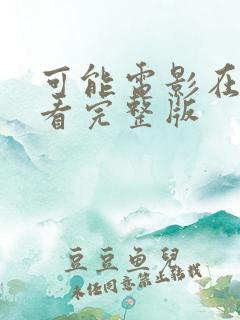 可能雷影在
看完整版
豆豆鱼儿
未经同意禁止转载